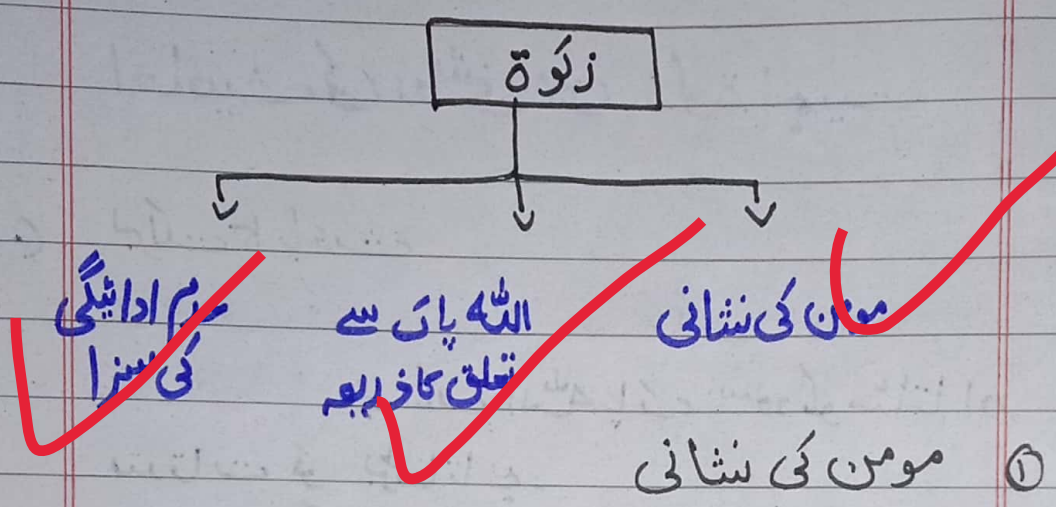 زکوٰۃ
مومن کی نشانی
اللہ پاک سے
تعلق کا ذریعہ
عدم ادائیگی
کی سزا
① مومن کی نشانی